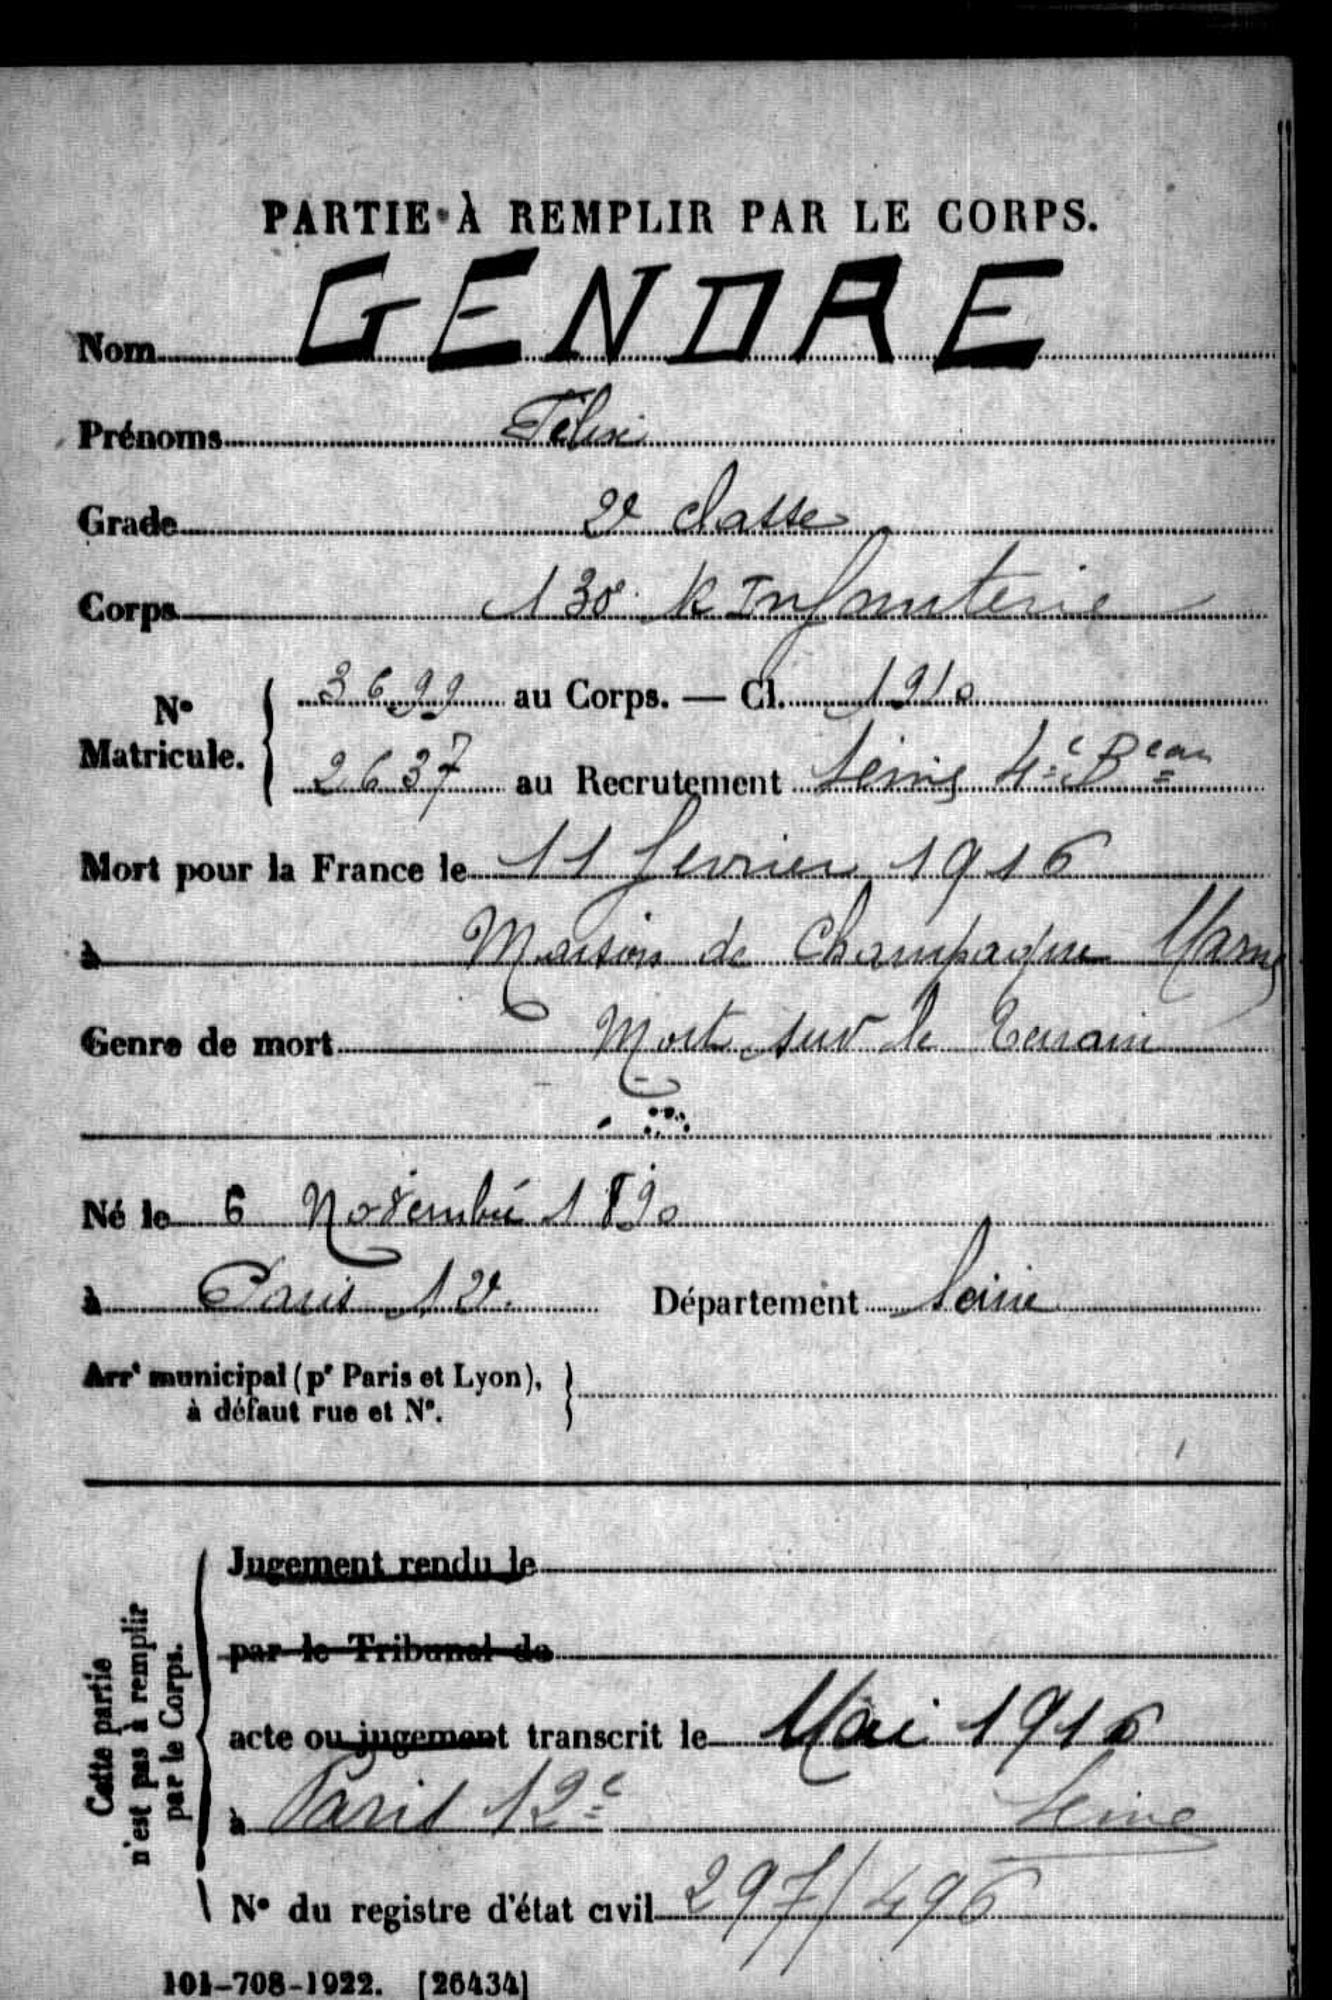 PARTIE À REMPLIR PAR LE CORPS.
Nom GENDRE
Prénoms Félix
Grade 2e classe
Corps 130e R Infanterie
No Matricule. { 3699 au Corps. — Cl. 1910
2637 au Recrutement Seine 4e Beau
Mort pour la France le 11 fevrier 1916
à Maison de Champagne Marne
Genre de mort Mort sur le terrain
Né le 6 Novembre 1890
à Paris 12e. Département Seine
Arrt municipal (pr Paris et Lyon),
à défaut rue et No.
Cette partie
n'est pas à remplir
par le Corps.
Jugement rendu le
par le Tribunal de
acte ou jugement transcrit le Mai 1916
à Paris 12e Seine
No du registre d'état civil 297/496
101-708-1922. [26434]